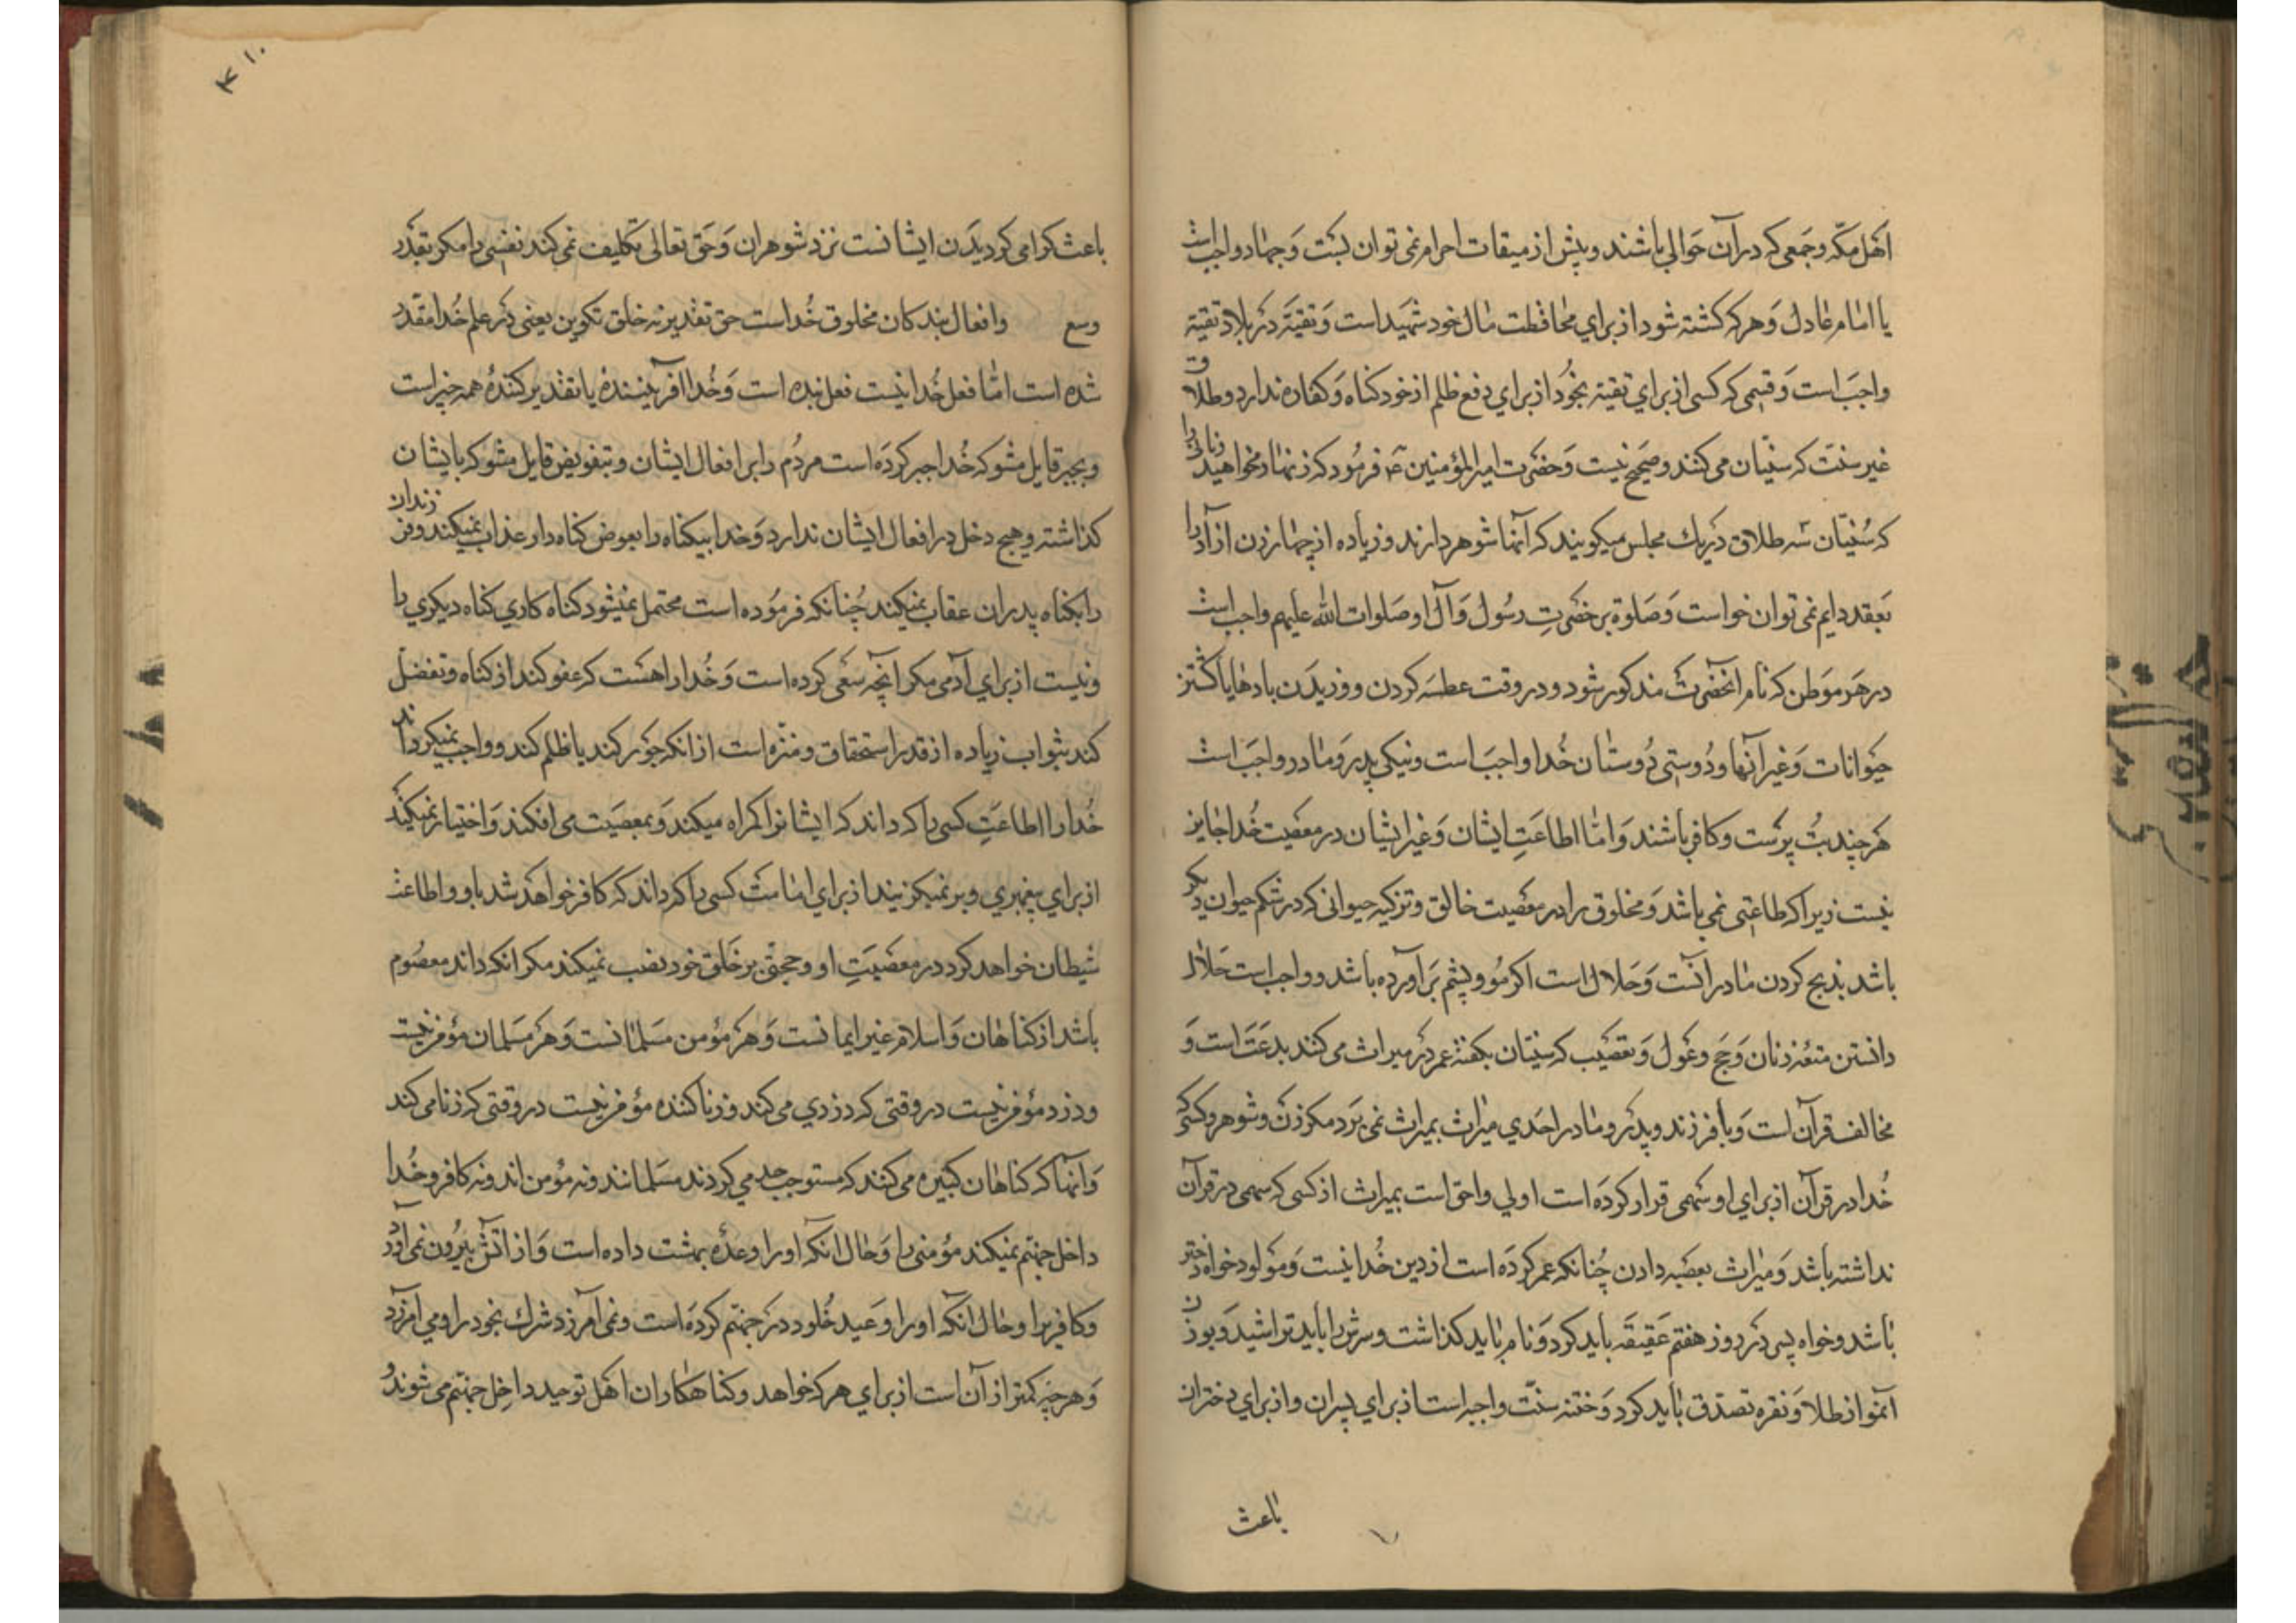 اهل مکّه و جمعی که در آن حوالی باشند و پیش از میقات احرام نمی توان بست و جهاد واجب است
با امام عادل و هر که کشته شود از برای محافظت مال خود شهید است و تقیّه در بلاد تقیّه
واجب است و قسمی که کسی از برای تقیّه بخورد از برای دفع ظلم از خود کناه و کفاره ندارد و طلاق
غیر سنّت که سنّیان می کنند و صحیح نیست و حضرت امیر المؤمنین ۴ فرمود که زنهار مخواهید زنانی را
که سُنّیان سه طلاق در یك مجلس میکویند که آنها شوهر دارند و زیاده از چهار زن آزاد را
بعقد دایم نمی توان خواست و صلوة بر حضرتِ رسُول و آل او صلوات الله علیهم واجب است
در هر موطن که نام آنحضرت مذکور شود و در وقت عطسه کردن و وزیدن بادها یا کشتن
حیوانات و غیر آنها و دُوستی دُوستان خُدا واجب است و نیکی پدر و مادر واجب است
هر چند بُت پرست و کافر باشند و امّا اطاعَتِ ایشان و غیر ایشان در معصیت خُدا جایز
نیست زیرا که طاعتی نمی باشد و مخلوق را در معصیت خالق و تزکیه حیوانی که در شکم حیوان دیکر
باشد بذبح کردن مادر آنست و حلال است اکر مُو و پشم بر آورده باشد و واجب است حلال
دانستن متعه زنان و حج و عَول و تعصیب که سنیّان بکفتۀ عمر در میراث می کنند بدعت است و
مخالف قرآن است و با فرزند و پدر و مادر احدی میراث بمیراث نمی برد مکر زن و شوهر و کسی که
خُدا در قرآن از برای او سهمی قرار کرده است اولی و احق است بمیراث از کسی که سهمی در قرآن
نداشته باشد و میراث بعصبه دادن چُنانکه عمر کرده است از دین خُدا نیست و مولود خواه دختر
باشد و خواه پسر در روز هفتم عقیقه باید کرد و نام باید کذاشت و سرش را باید تراشید و بوزن
آنمو از طلا و نقره تصدّق باید کرد و ختنه سنّت واجبه است از برای پسران و از برای دختران
باعث
۱۰
باعث کرامی کردیدن ایشانست نزد شوهران و حق تعالی تکلیف نمی کند نفسی را مکر بقدر
وسع و افعال بندکان مخلوق خُداست حق تقدیر نه خلق تکوین یعنی در علم خُدا مقدّر
شده است امّا فعل خُدا نیست فعل بنده است و خُدا آفریننده یا تقدیر کنندۀ همه چیز است
و بجبر قایل مشو که خُدا جبر کرده است مردُم را بر افعال ایشان و بتفویض قایل مشو که بایشان
کذاشته و هیچ دخل در افعال ایشان ندارد و خدا بیکناه را بعوض کناه دار عذاب نمیکند و فرزندان
را بکناه پدران عقاب نمیکند چُنانکه فرمُوده است محتمل نمیشود کناه کاری کناه دیکری را
و نیست از برای آدمی مکر آنچه سعی کرده است و خُدا را هست که عفو کند از کناه و تفضل
کند بثواب زیاده از قدر استحقاق و منزّه است از آنکه جور کند یا ظلم کند و واجب نمیکرداند
خُدا را اطاعتِ کسی را که داند که ایشانرا کمراه میکند و بمعصیت می افکند و اختیار نمیکند
از برای پیغمبری و بر نمیکزیند از برای امامت کسی را که داند که کافر خواهد شد باو و اطاعت
شیطان خواهد کرد در معصیتِ او و حجتی بر خلق خود نصب نمیکند مکر آنکه داند معصُوم
باشد از کناهان و اسلام غیر ایمانست و هر مؤمن مسلمانست و هر مسلمان مؤمن نیست
و دزد مؤمن نیست در وقتی که دزدی می کند و زنا کننده مؤمن نیست در وقتی که زنا می کند
و آنها که کناهان کبیره می کنند که مستوجب حد می کردند مسلمانند و نه مؤمن اند و نه کافر و خُدا
داخل جهنّم نمیکند مؤمنی را و حال آنکه او را وعدۀ بهشت داده است و از آتش بیرُون نمی آورد
کافریرا و حال آنکه او را وعید خُلود در جهنّم کرده است و نمی آمرزد شرك بخود را و می آمرزد
و هر چه کمتر از آن است از برای هر که خواهد و کناهکاران اهل توحید داخِل جهنّم می شوند و